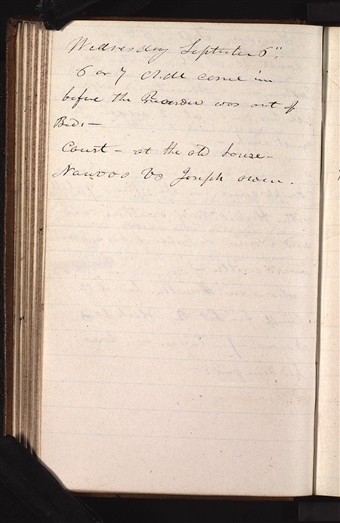 Wednesday September 6".
6 or 7 Ald. come in
before the Recorder was out of
Bed.—
Court — at the old house —
Nauvoo Vs Joseph Owen.